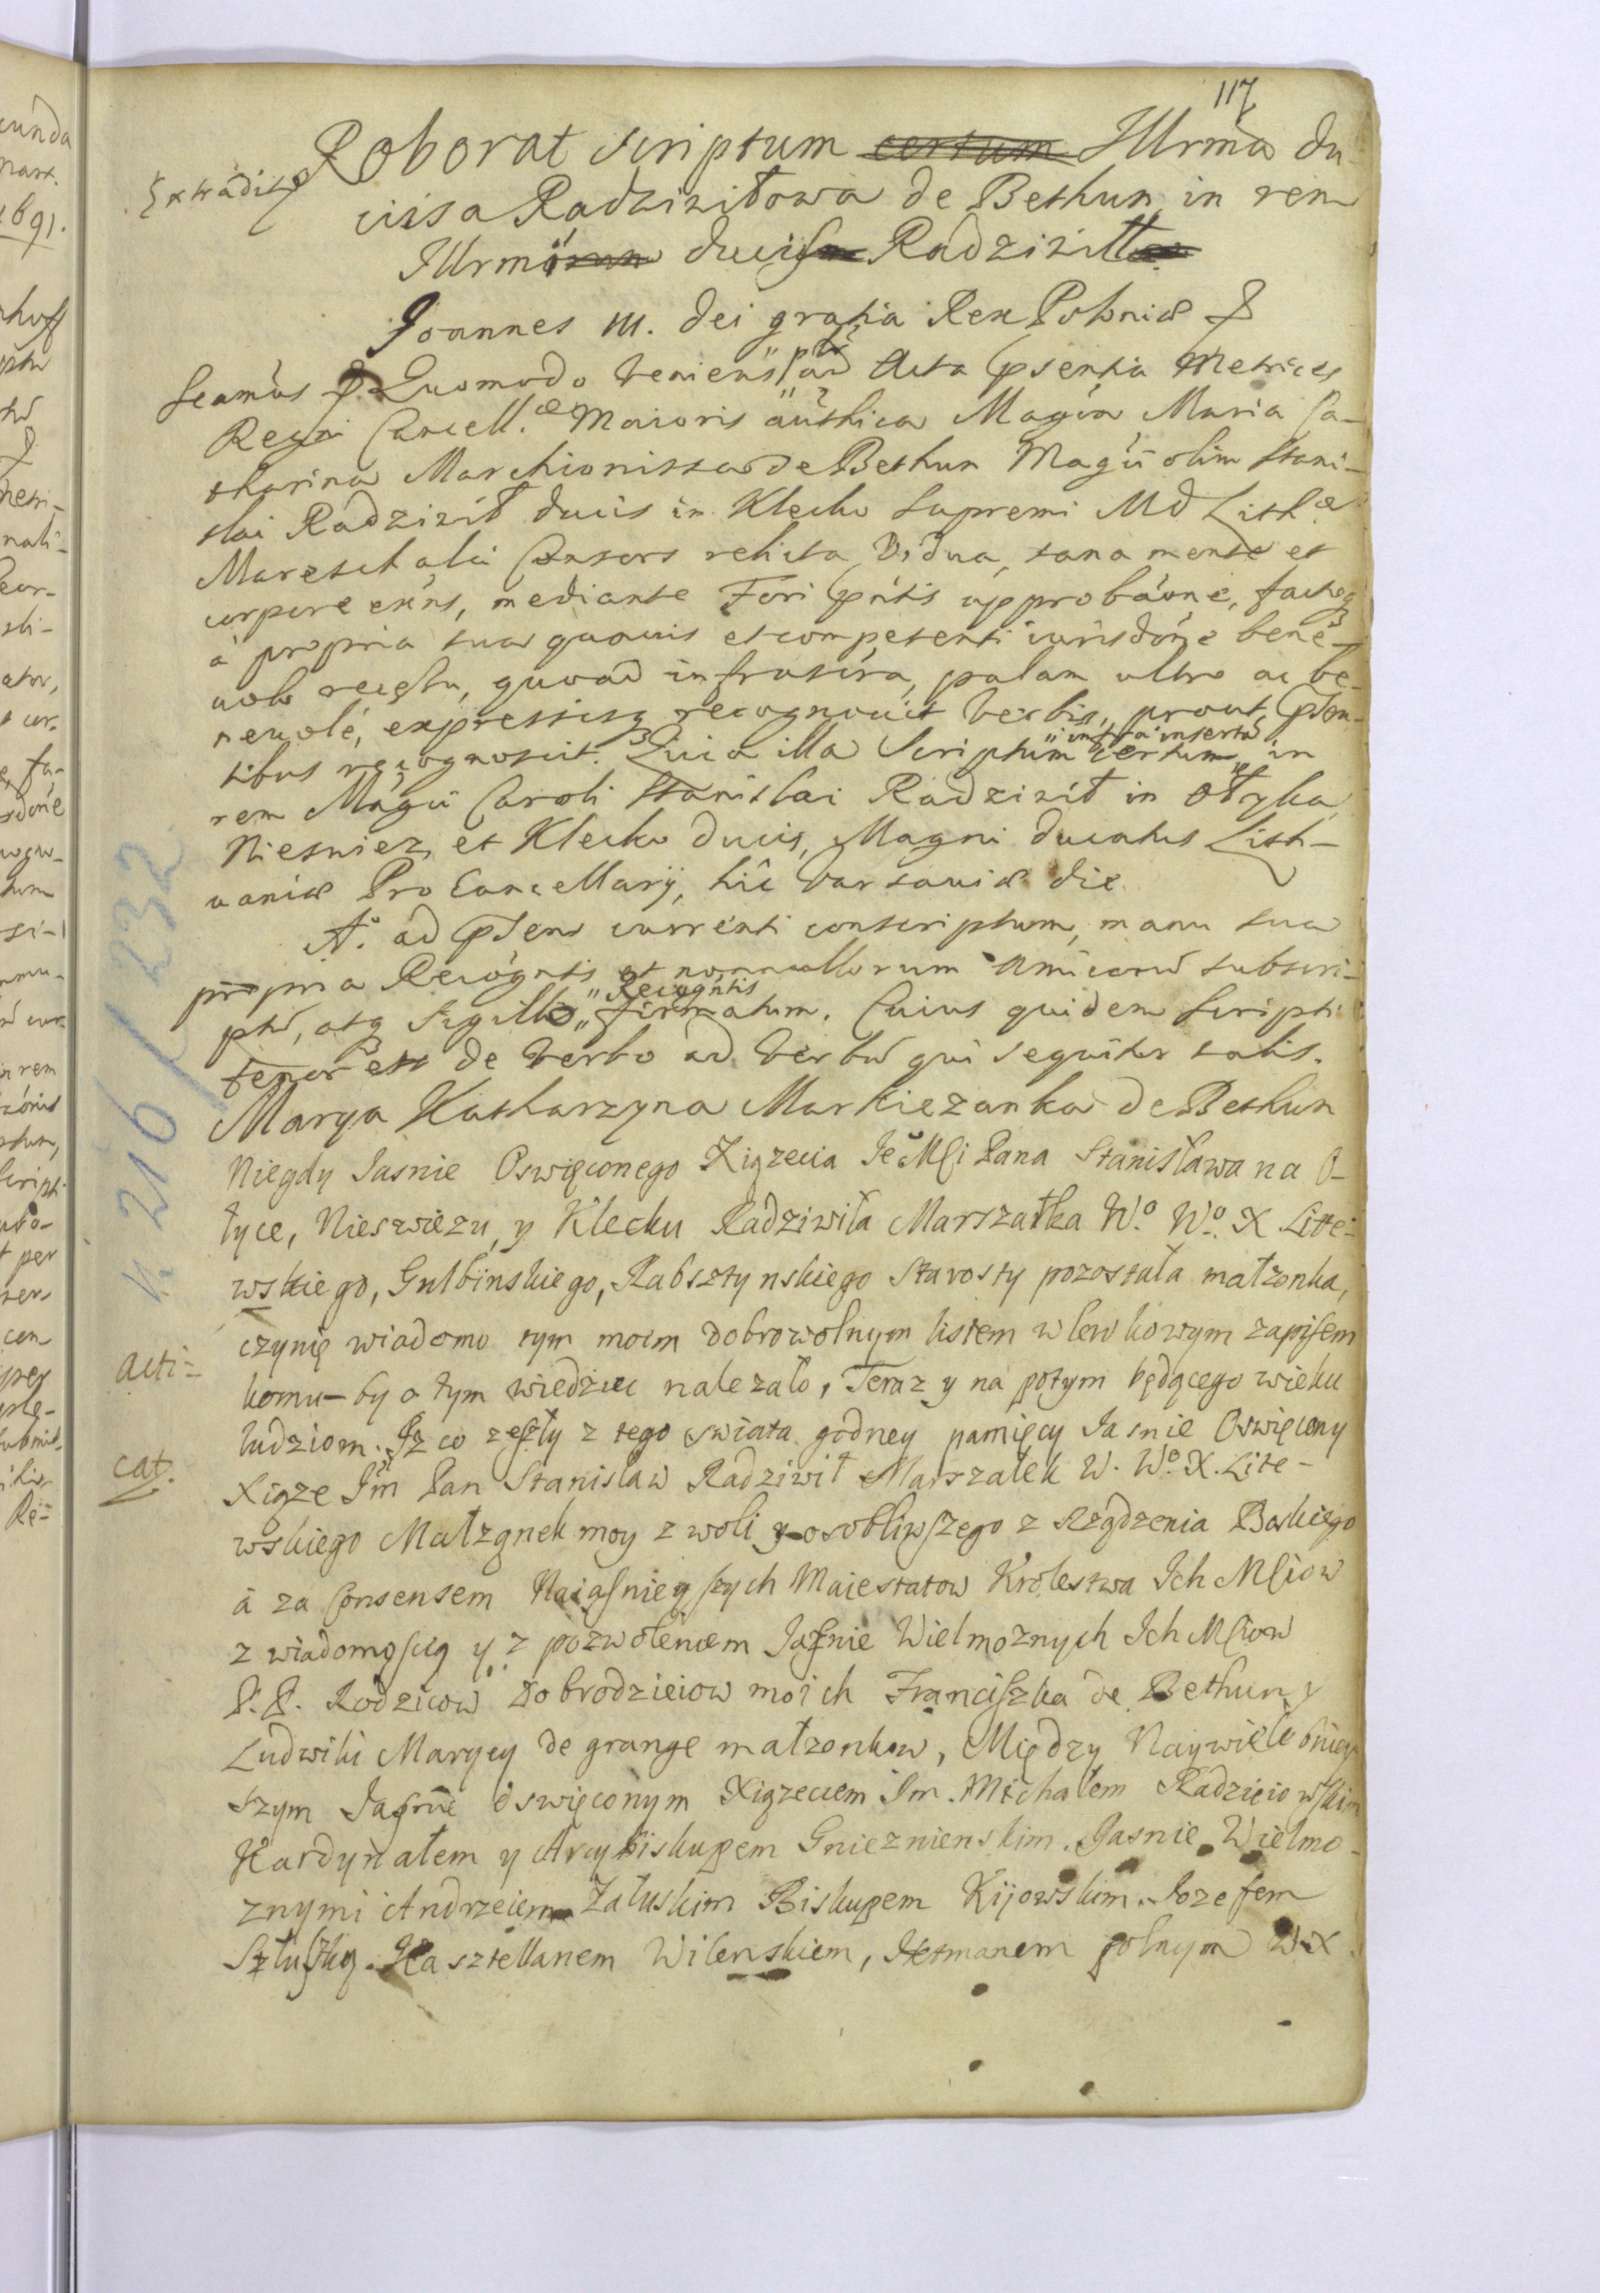 117
Roborat scriptum certum Illrma Du
Extradit.
cissa Radziwiłowa de Bethun in rem
Illrmorum ducis Radziwiłł
Joannes III. Dei gratia Rex Poloniæ &
Seamus & Quomodo veniens ad Acta psentia Metrices
Regni Cancell.æ Maioris authica Magca Maria Ca-
tharina Marchionissa de Bethun Magci olim Stani-
slai Radziwił ducis in Klecko Supremi M D Lith.æ
Mareschalci Consors relicta Vidua, sana mente et
corpore exns, mediante Fori pntis approbaone, factoq
à propria sua quavis et competenti iurisdone bene-
volo recessu, quoad infrascra, palam ultro ac be-
nevolé, expressisq recognovit verbis, prout psen-
tibus recognoscit. Quia illa Scriptum certum in
infra insertu
rem Magci Caroli Stanislai Radziwił in Ołyka
Nieswiez et Klecko Ducis, Magni Ducatus Lith-
uaniæ Pro Cancellarij, hic Varsaviæ die
A.o ad psens currenti conscriptum, manu sua
propria Recogntis et nonnullorum Amicoru subscri-
Recogntis
ptu, atq Sigillo firmatum. Cuius quidem Scripti
tenor est de verbo ad verbu qui sequitur talis.
Marya Katharzyna Markiezanka de Bethun
Niegdy Jasnie Oswięconego Xiązecia Je Mści Pana Stanisława na O-
łyce, Nieswiezu, y Klecku Radziwiła Marszałka W.o W.o X Lite-
wskiego, Gulbinskiego, Rabsztynskiego Starosty pozostała małzonka,
czynię wiadomo tym moim dobrowolnym listem wlewkowym zapisem
acti-
komu-by o tym wiedziec nalezało, Teraz y na potym będącego wieku
ludziom. Iz co zeszły z tego swiata godney pamięcy Jasnie Oswięcony
cat.
Xiąze Im Pan Stanislaw Radziwił Marszałek W. W.o X. Lite-
wskiego Małzonek moy z woli y osobliwszego z rządzenia Boskiego
à za Consensem Naiasnieyszych Maiestatow Krolestwa Ich Mściow
z wiadomoscią y z pozwoleniem Jasnie Wielmoznych Ich Mściow
P.P. Rodzicow Dobrodzieiow moich Franciszka de Bethun y
Ludwiki Maryey de grange małzonkow, Między Naywielebniey
szym Jasnie oswięconym Xiązeciem Im. Michałem Radzieiowskim
Kardynałem y Arcybiskupem Gnieznienskim. Jasnie Wielmo-
znymi Andrzeiem Załuskim Biskupem Kijowskim. Jozefem
Słuszką. Kasztellanem Wilenskiem, Hetmanem polnym W.X.
k. 216 / 232